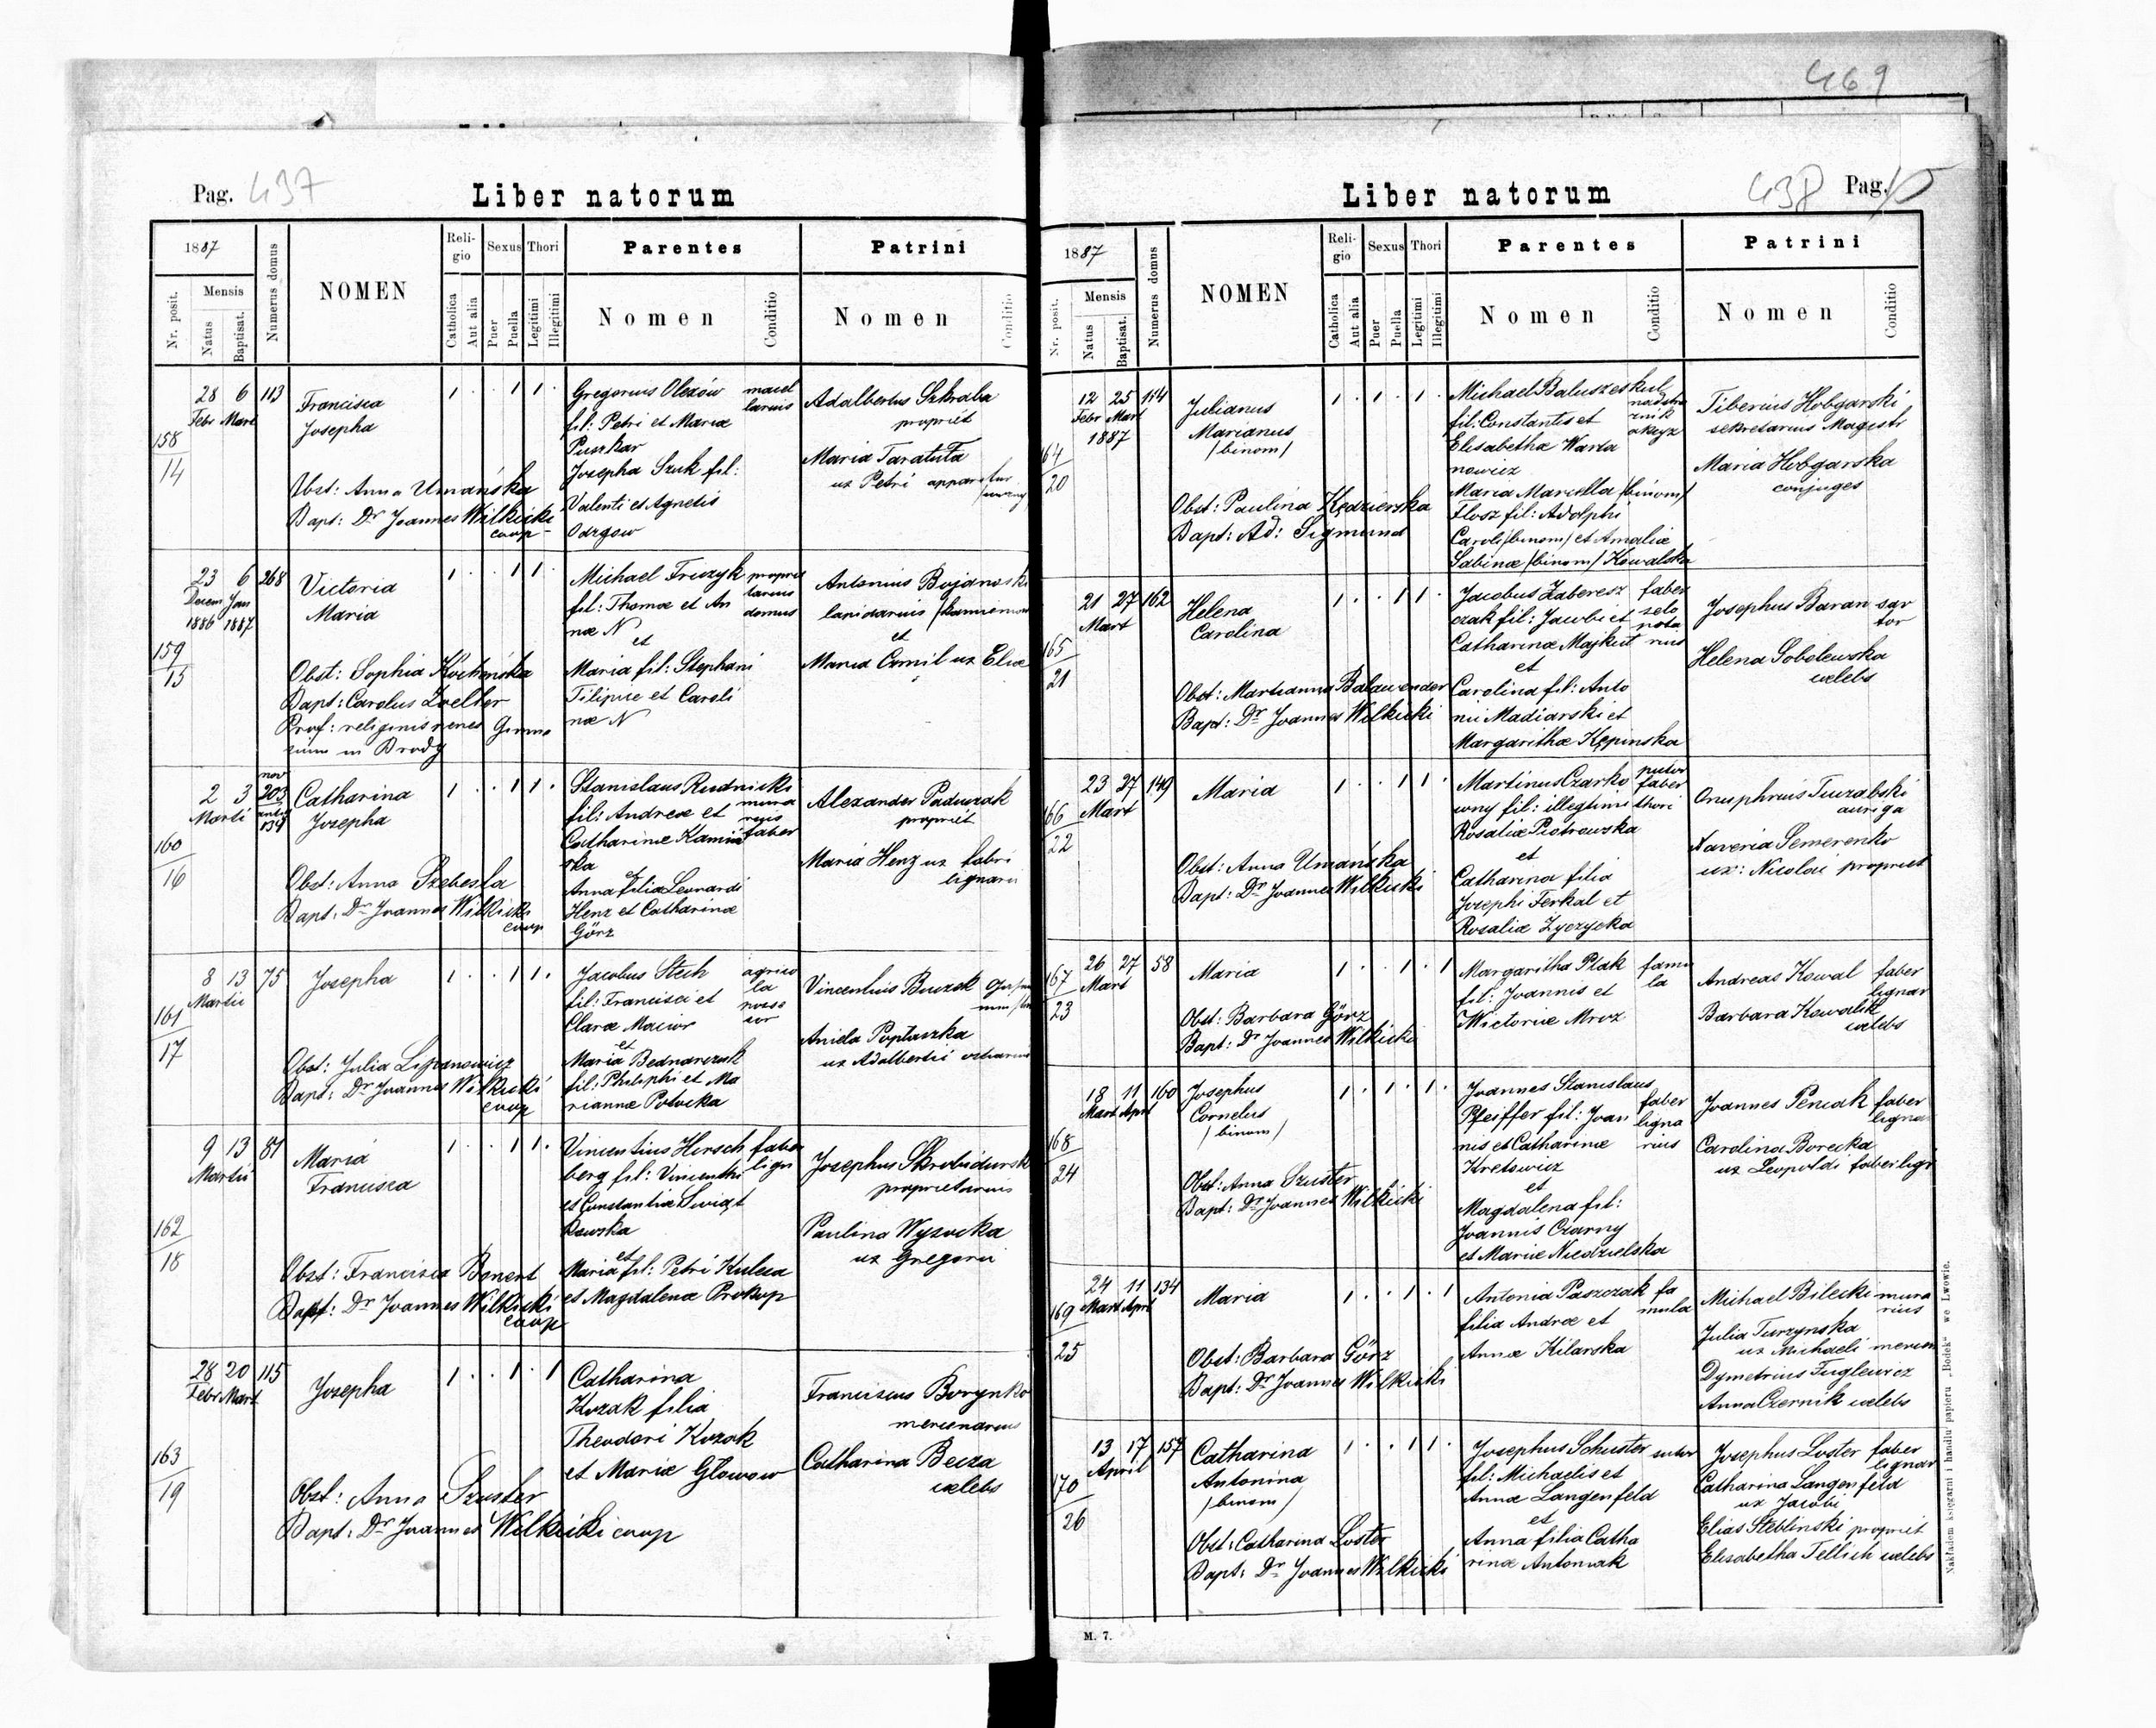 469
Pag. 437
Liber natorum
1887
Nr. posit.
Mensis
Natus
Baptisat.
Numerus domus
NOMEN
Reli-
gio
Catholica
Aut alia
Sexus
Puer
Puella
Thori
Legitimi
Illegitimi
Parentes
Nomen
Conditio
Patrini
Nomen
Conditio
158
14
28 6 113
Febr Mart
Francisca
Josepha
1 . . 1 1 .
Obst: Anna Umańska
Bapt: Dr Joannes Wilkicki
coop
Gregorius Olexów
fil: Petri et Mariæ
Puszkar
Josepha Szuk fil:
Valenti et Agnetis
Odrgow
macel
larius
Adalbertus Szkraba
propriet
Maria Taratuta
ux Petri
159
15
23 6 268
Decem Jan
1886 1887
Victoria
Maria
1 . . 1 1 .
Obst: Sophia
Bapt: Carolus Zoeller
Prof: religionis penes Gimna
sium in Brody
Michael
fil: Thomæ et An
næ N
et
Maria fil: Stephani
et Caroli
næ N
proprie
tarius
domus
Antonius
lapidarius
et
Maria
160
16
2 3
Marti
nov
203
antiq
134
Catharina
Josepha
1 . . 1 1 .
Obst: Anna
Bapt: Dr Joannes Wilkicki
coop
Stanislaus Rudnicki
fil: Andreæ et
Catharinæ Kamin
ska
et
Anna filia Leonardi
Henz et Catharinæ
Görz
faber
Alexander Paduszak
propriet
Maria Henz ux fabri
lignarii
161
17
8 13 75
Martii
Josepha
1 . . 1 1 .
Obst: Julia Lipanowicz
Bapt: Dr Joannes Wilkicki
coop
Jacobus Stech
fil: Francisci et
Claræ Macior
et
Maria Bednarczuk
fil: Philiphi et Ma
riannæ Potocka
agrico
la
posse
sor
Vincentius
Aniela Poptaszka
ux Adalberti
162
18
9 13 87
Martii
Maria
Francisca
1 . . 1 1 .
Obst: Francisca Bonert
Bapt: Dr Joannes Wilkicki
coop
Vincentius Hersch
berg fil: Vincenthi
et Constantiæ Swiąt
kowska
et
Maria fil: Petri Kulesa
et Magdalena Prokop
faber
lign
Josephus
proprietarius
Paulina Wysocka
ux Gregorii
163
19
28 20 115
Febr Mart
Josepha
1 . . 1 . 1
Obst: Anna Szuster
Bapt: Dr Joannes Wilkicki coop
Catharina
Kozak filia
Theodori Kozak
et Mariæ Glowow
Franciscus Borynko
mercenarius
Catharina Becza
celebs
Liber natorum
438 Pag.
1887
Nr. posit.
Mensis
Natus
Baptisat.
Numerus domus
NOMEN
Reli-
gio
Catholica
Aut alia
Sexus
Puer
Puella
Thori
Legitimi
Illegitimi
Parentes
Nomen
Conditio
Patrini
Nomen
Conditio
64
20
12 25 114
Febr Mart
1887
Julianus
Marianus
/binom/
1 . 1 . 1 .
Obst: Paulina Kędzierska
Bapt: Ad: Sigmund
Michael Baluszeskul
fil: Constantis et
Elisabetha Warta
nowicz
Maria Marcella /binom/
Flosz fil: Adolphi
Caroli /binom/ et Amaliæ
Sabinæ /binom/ Kowalska
nadstra
żnik
akcyz
Tiberius Hobgarski
sekretarius Magistr
Maria Hobgarska
conjuges
165
21
21 27 162
Mart
Helena
Carolina
1 . . 1 1 .
Obst: Marianna Balawender
Bapt: Dr Joannes Wilkicki
Jacobus Zaberesz
czak fil: Jacobi et
Catharinæ Majkut
et
Carolina fil: Anto
nii Madiarski et
Margarithæ Kępinska
faber
Josephus Baran sar
tor
Helena Sobolewska
celebs
66
22
23 27 149
Mart
Maria
1 . . 1 1 .
Obst: Anna Umańska
Bapt: Dr Joannes Wilkicki
Martinus Czarko
wny fil: illegtimi thori
Rosaliæ Piotrowska
et
Catharina filia
Josephi Ferkal et
Rosaliæ Zyczycka
faber
Onuphrius Tuczabski
auriga
Xaveria Semerenko
ux: Nicolai propriet
167
23
26 27 58
Mart
Maria
1 . . 1 . 1
Obst: Barbara Görz
Bapt: Dr Joannes Wilkicki
Margaritha Ptak
fil: Joannis et
Wictoriæ Mroz
famu
la
Andreas Kowal faber
lignar
Barbara Kowalik
celebs
168
24
18 11 160
Mart April
Josephus
Cornelus
/binom/
1 . 1 . 1 .
Obst: Anna Szuster
Bapt: Dr Joannes Wilkicki
Joannes Stanislaus
Pfeiffer fil: Joan
nis et Catharinæ
Kretowicz
et
Magdalena fil:
Joannis Czarny
et Mariæ Niedzielska
faber
ligna
rius
Joannes Peniak faber
ligna
Carolina Borecka
ux Leopoldi faber lign
169
25
24 11 134
Mart April
Maria
1 . . 1 . 1
Obst: Barbara Görz
Bapt: Dr Joannes Wilkicki
Antonia Paszczak fa
mula
filia Andreæ et
Annæ Kilarska
Michael Bilecki mura
rius
Julia Turzynska
ux Michaeli mercen
Dymetrius Fuglewicz
Anna Czernik celebs
170
26
13 17 157
April
Catharina
Antonina
/binom/
1 . . 1 1 .
Obst: Catharina Loster
Bapt: Dr Joannes Wilkicki
Josephus Schuster sutor
fil: Michaelis et
Annæ Langenfeld
et
Anna filia Catha
rinæ Antoniak
Josephus Loster faber
lignar
Catharina Langenfeld
ux Jacobi
Elias Steblinski propriet
Elisabetha Tellich celebs
Nakładem księgarni i handlu papieru „Bodek“ we Lwowie.
M. 7.